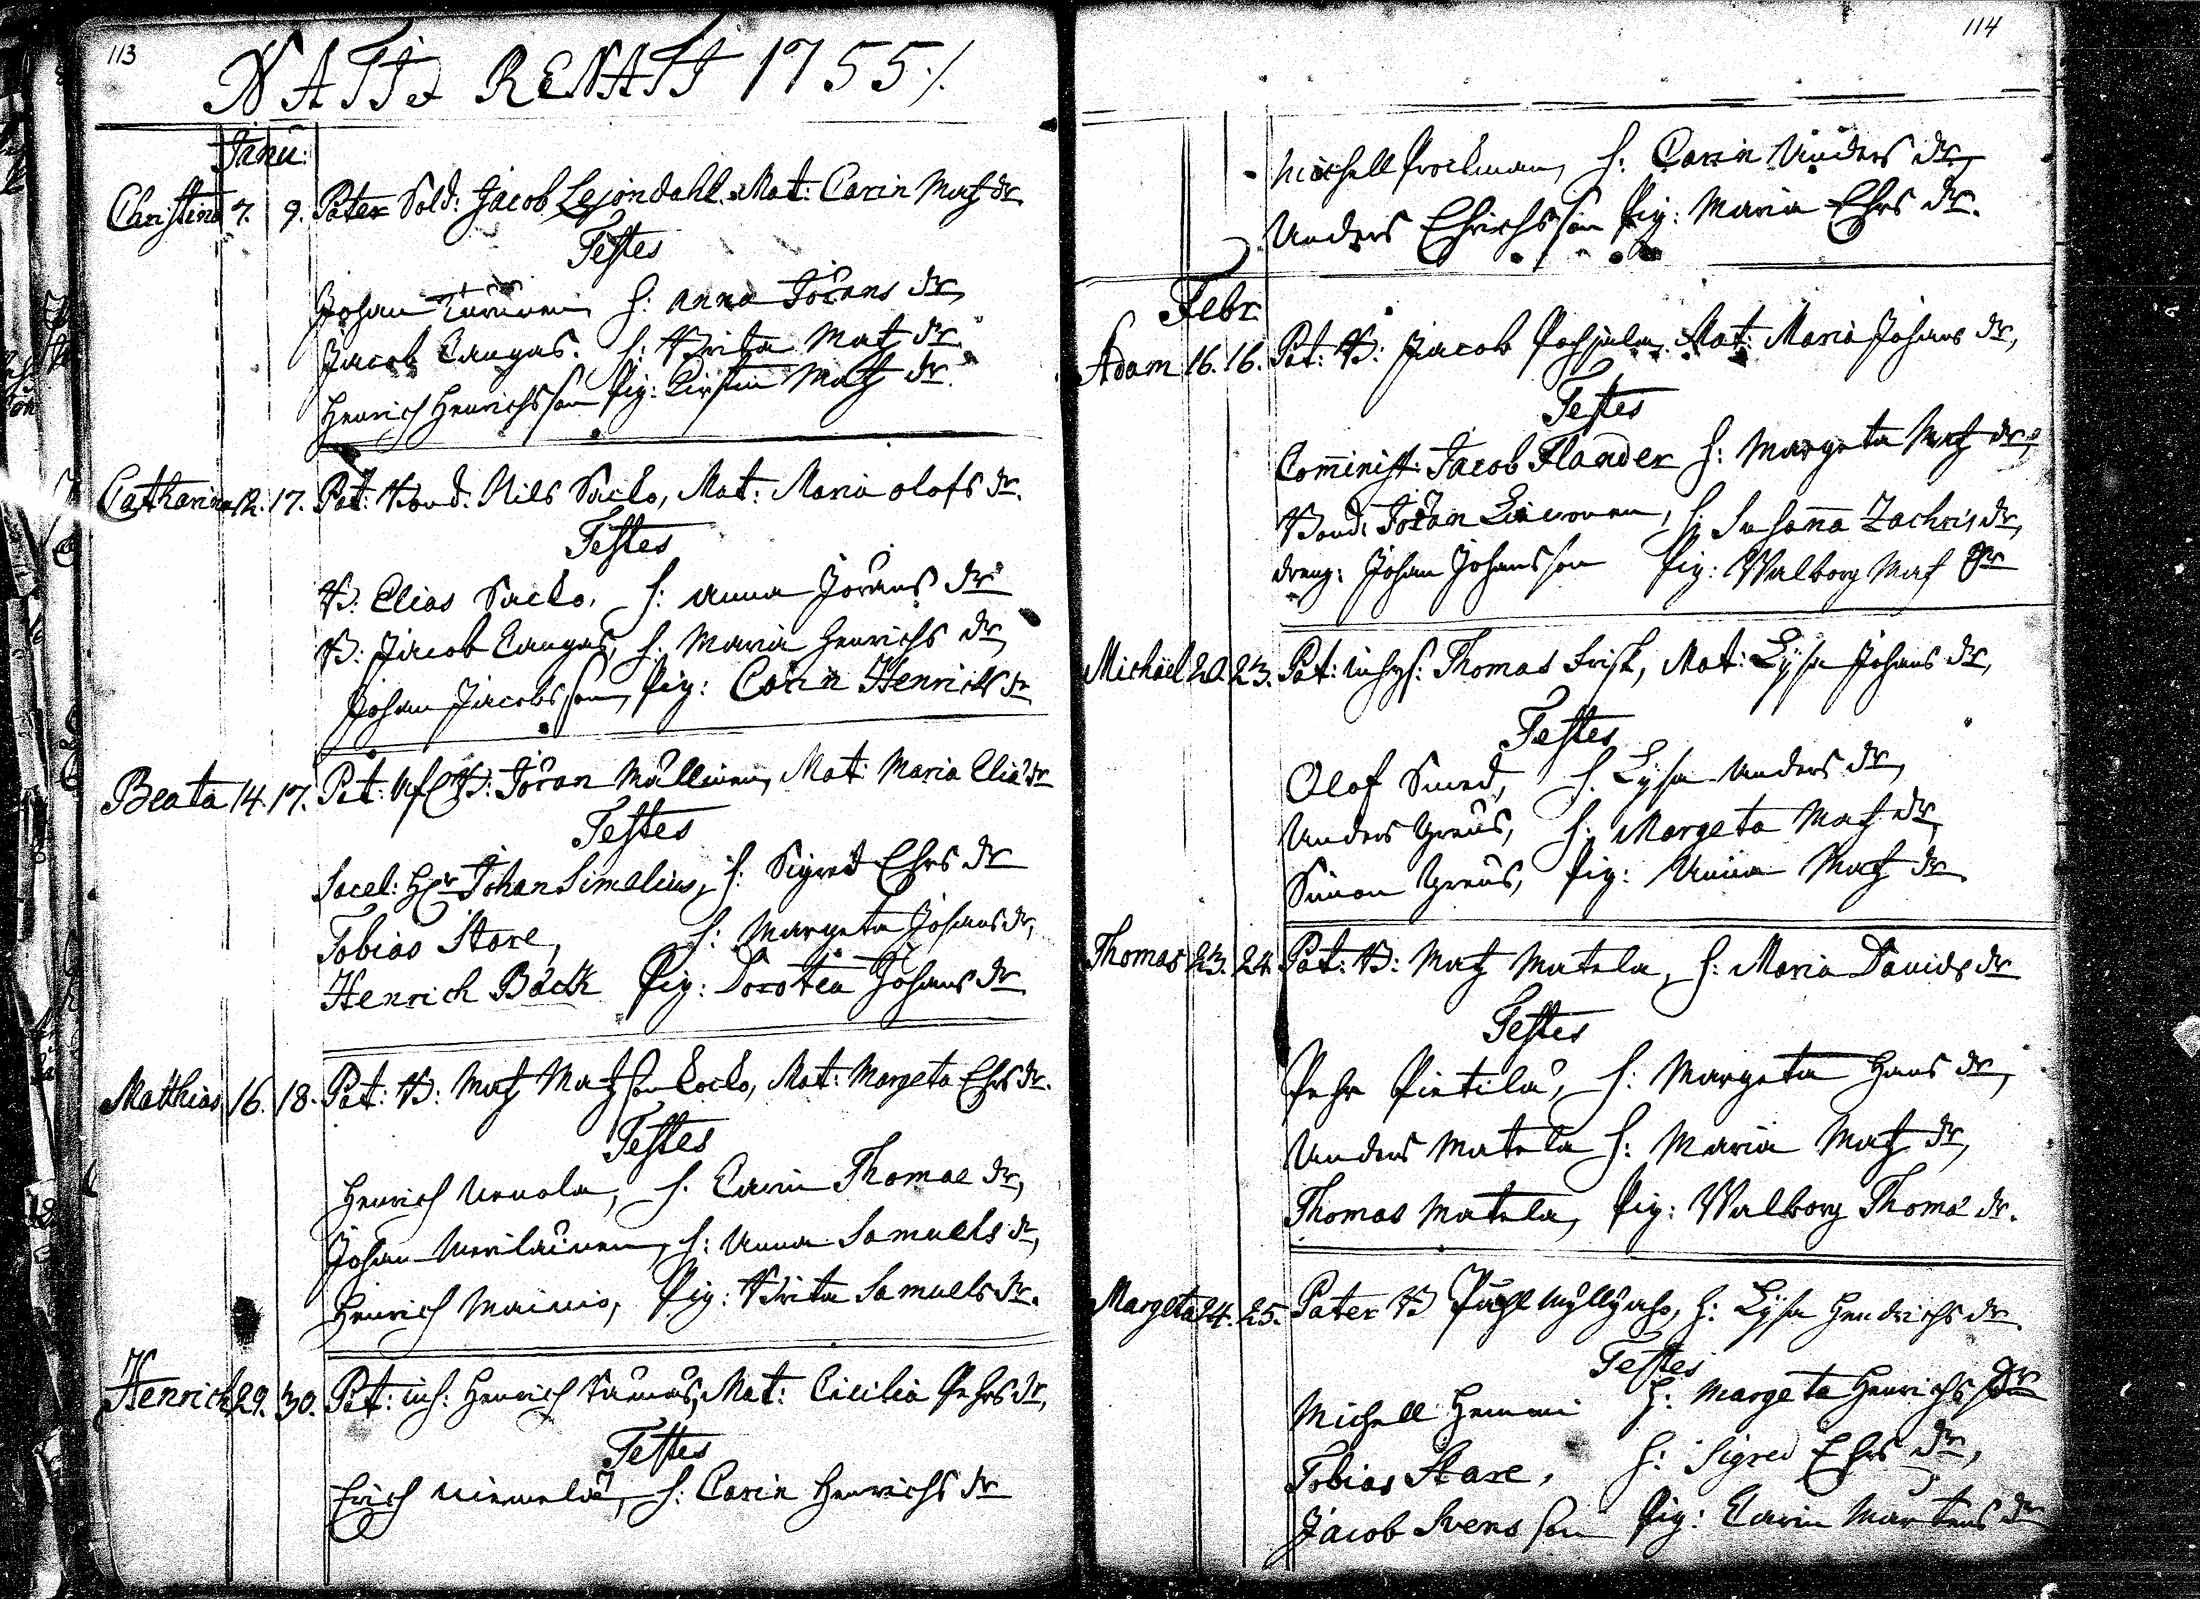 113
NATI & RENATI 1755./.
Janu:
Christina 7. 9. Pater Sold: Jacob Lejondahl. Mat: Carin Matz dr
Testes
Johan h: Anna Jörans dr,
Jacob Cangas. h: Brita Matz dr.
Henrich Henrichsson Pig: Kirstin Matz dr.
Catharina 12. 17. Pat: Bond: Nils Sacko, Mat: Maria Olofs dr.
Testes
B: Elias Sacko, h: Anna Jörans dr
B: Jacob Cangas, h: Maria Henrichs dr,
Johan Jacobsson, Pig: Carin Henrichs dr
Beata 14. 17. Pat: B: Jöran Mällinen, Mat: Maria Eliæ dr
Testes
Sacel: Hr Johan Simelius, h: Sigred Ehrs dr
Tobias Stare, h: Margeta Johans dr,
Henrich Bäck Pig: Dorotea Johans dr
Matthias 16. 18. Pat: B: Matz Matzson Låcko, Mat: Margeta Ehrs dr.
Testes
Henrich h: Carin Thomae dr,
Johan Meriläinen, h: Anna Samuels dr,
Henrich Mainio, Pig: Brita Samuels dr.
Henrich 29. 30. Pat: inh: Henrich Mat: Cicilia Pehrs dr,
Testes
Erich Niemelä, h: Carin Henrichs dr
114
Michell Brockman, h: Carin Anders dr,
Anders Ehrichsson Pig: Maria Ehrs dr.
Febr
Adam 16. 16. Pat: B: Jacob Pohjala, Mat: Maria Johans dr,
Testes
Cominist: Jacob Flander h: Margeta Matz dr,
Bond: Jöran h: Susanna Zachris dr,
dreng: Johan Johansson Pig: Walborg Matz dr
Michäel 20. 23. Pat: Thomas Frisk, Mat: Lysa Johans dr,
Testes
Olof Smed, h. Lysa Anders dr,
Anders Greus, h: Margeta Matz dr,
Simon Greus, Pig: Anna Matz dr
Thomas 23. 24. Pat: B: Matz Matela, h: Maria Davids dr
Testes
Pehr Pietilä, h: Margeta Hans dr,
Anders Matela h: Maria Matz dr,
Thomas Matela, Pig: Walborg Thomæ dr.
Margeta 24. 25. Pater B Påhl Myllyaho, h: Lysa Hendrichs dr
Testes
Michell Hemmi h: Margeta Henrichs dr
Tobias Stare, h: Sigred Ehrs dr,
Jacob Svensson Pig: Carin Mårtens dr